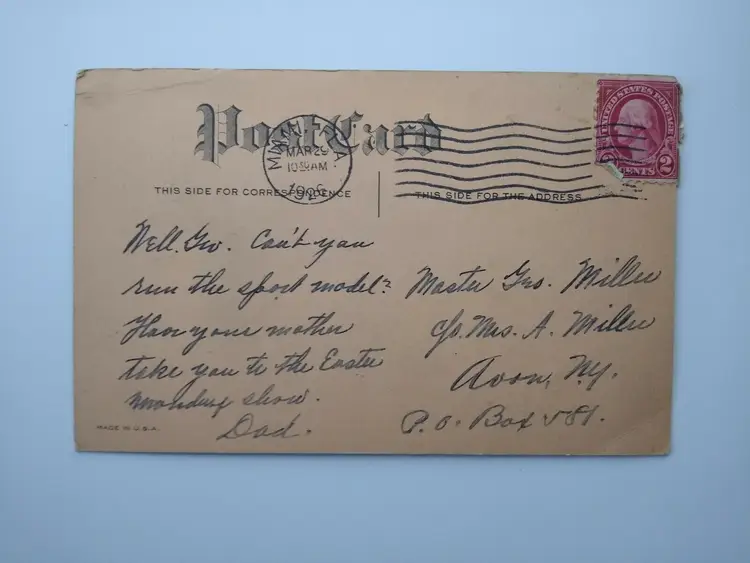 Post Card
UNITED STATES POSTAGE
2 CENTS 2
MIAMI, FLA.
MAR 29
10 30 AM
THIS SIDE FOR CORRESPONDENCE
THIS SIDE FOR THE ADDRESS
Well. Geo. Can't you
run the sport model?
Have your mother
take you to the Easter
monday show.
Dad.
Master Geo. Miller
c/o. Mrs. A. Miller
Avon, N.Y.
P.O. Box 581.
MADE IN U.S.A.